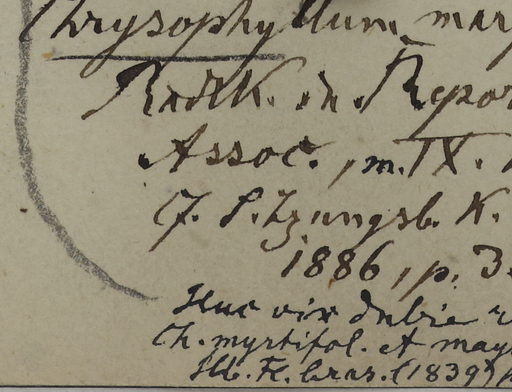 Chrysophyllum mar
Radlk. in Repor
Assoc., m. IX.
Cf. S. Tzungsb. K.
1886, p. 3
Huc vix dubie
Ch. myrtifol. et mayt
Hb. Fl. bras. (1839) p